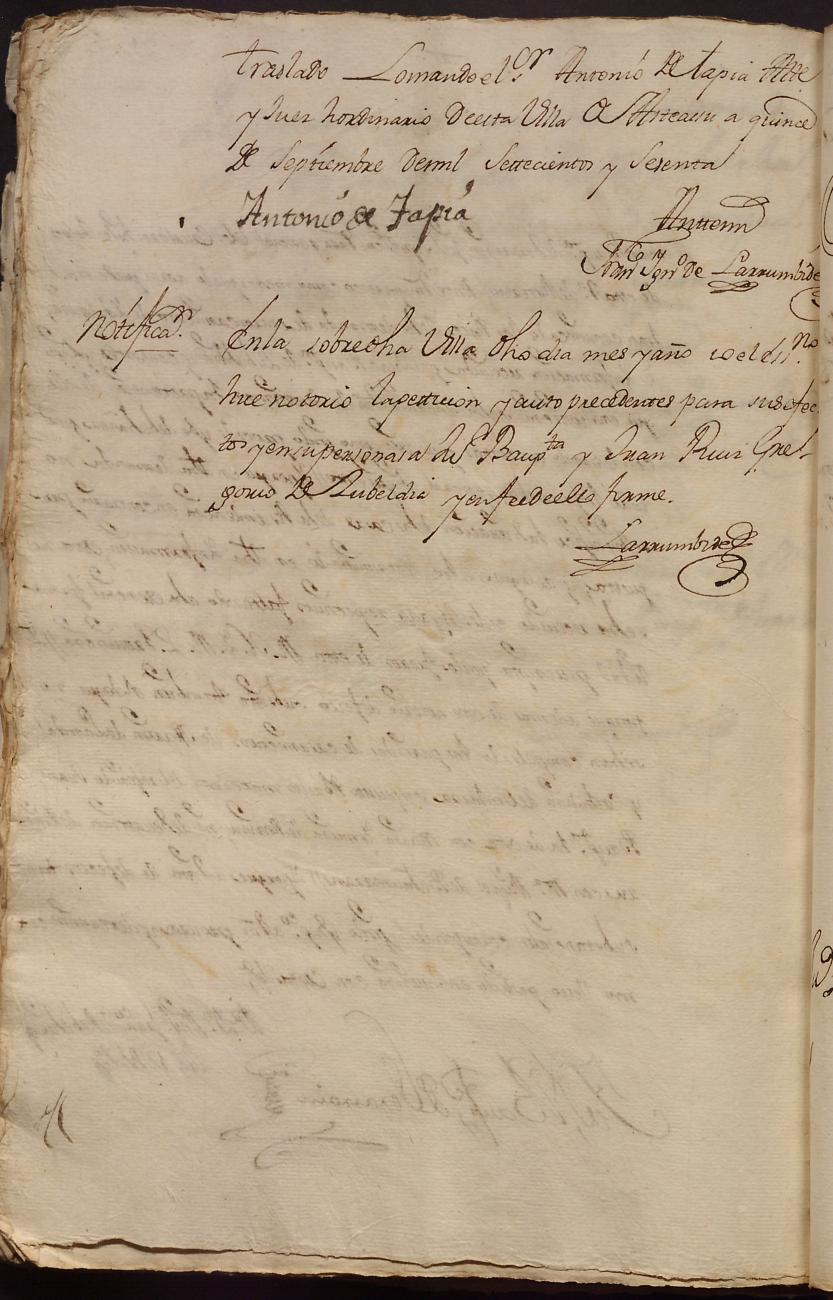 traslado Lomando el Sr. Antonio de tapia Alle
y Juez hordinario de esta Villa de Asteasu a quince
de Septiembre de mil Settecientos y Sesenta
Antonio de Tapia
Antemi
Franco Ygno de Larrumbide
Notificaon.
En la sobredha Villa dho dia mes y año io el dho SSno.
hice notorio la peticion y auto precedentes para sus efec-
tos y en su persona a Ju. Baupta y Juan Ruiz Gre-
gorio de Zubeldia y en fee de ello firme.
Larrumbide